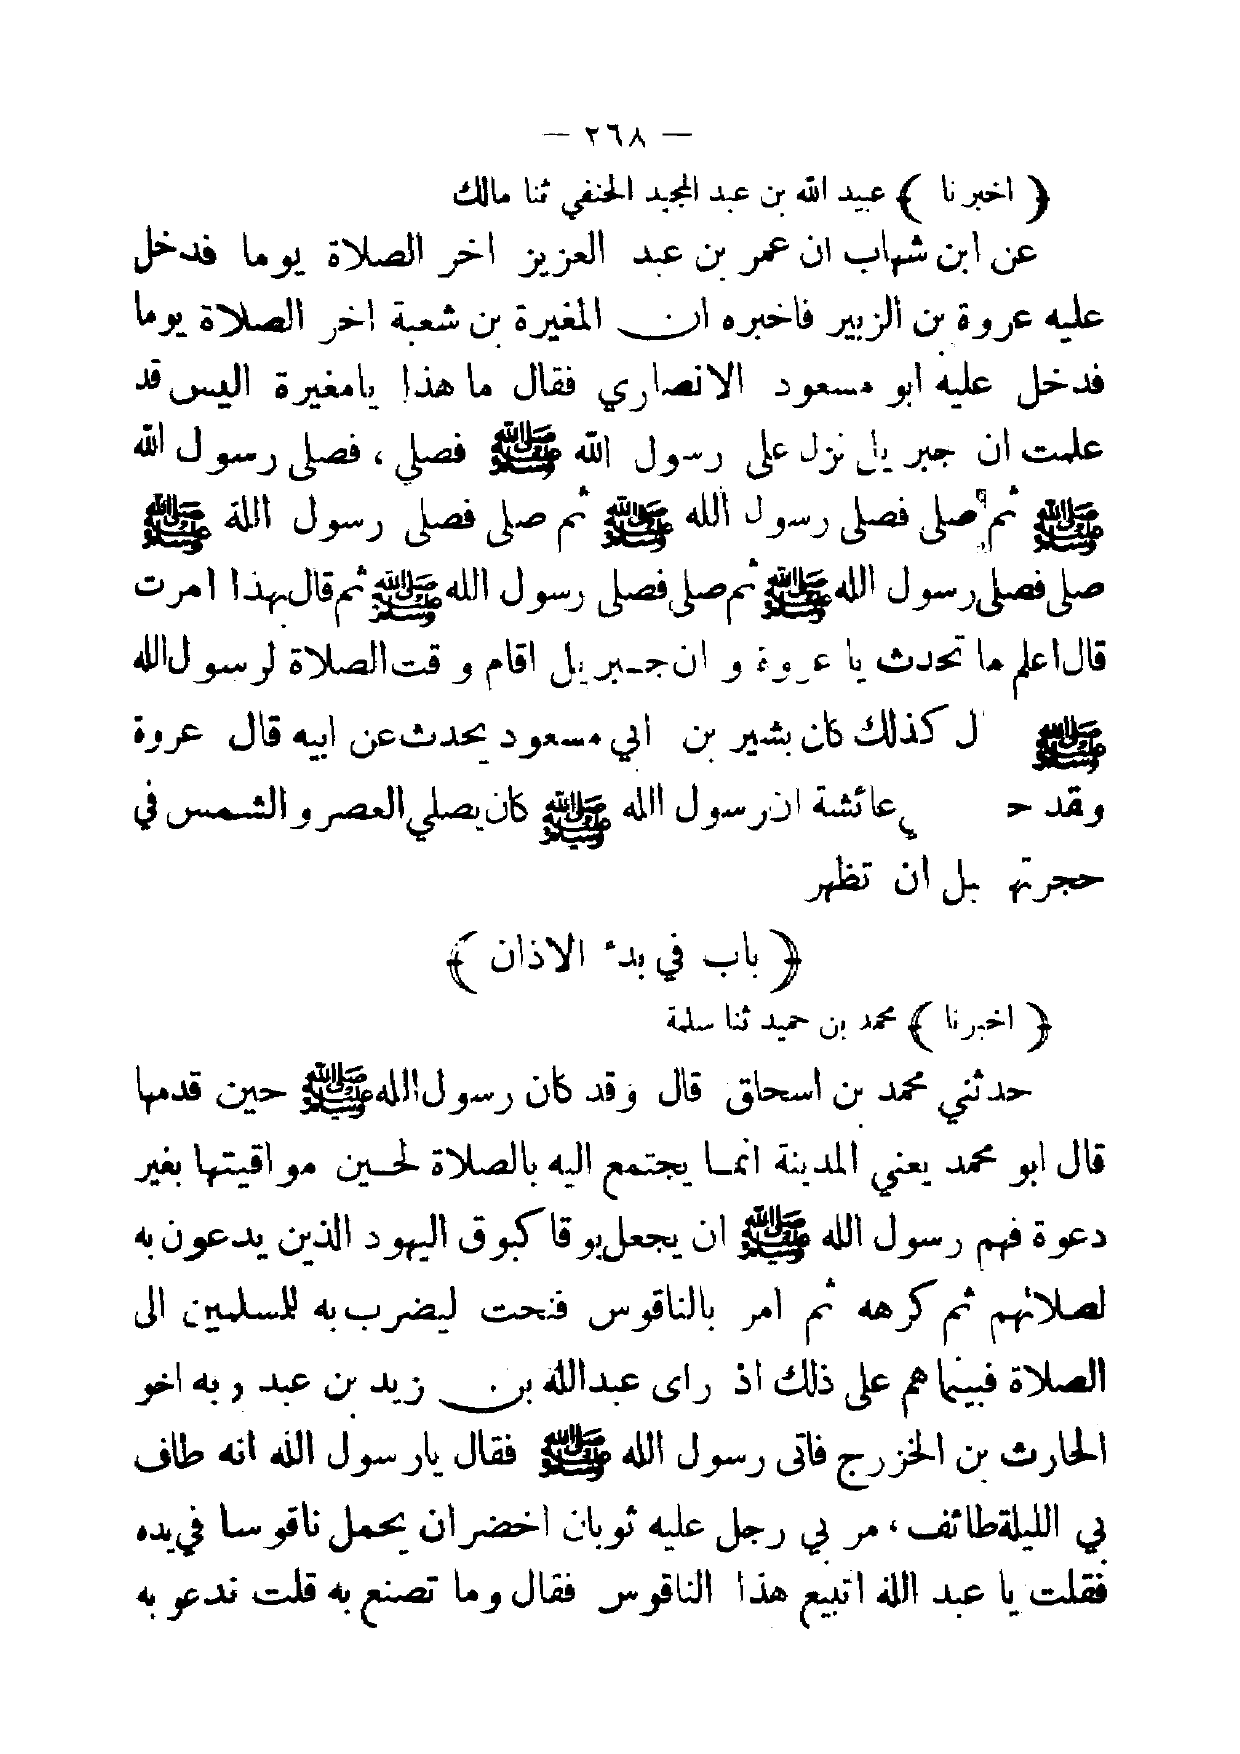 — ٢٦٨ —
﴿ اخبرنا ﴾ عبيد الله بن عبد المجيد الحنفي ثنا مالك
عن ابن شهاب ان عمر بن عبد العزيز اخر الصلاة يوما فدخل
عليه عروة بن الزبير فاخبره ان المغيرة بن شعبة اخر الصلاة يوما
فدخل عليه ابو مسعود الانصاري فقال ما هذا يامغيرة اليس قد
علمت ان جبريل نزل على رسول الله ﷺ فصلى ، فصلى رسول الله
ﷺ ثم صلى فصلى رسول الله ﷺ ثم صلى فصلى رسول الله ﷺ
صلى فصلى رسول الله ﷺ ثم صلى فصلى رسول الله ﷺ ثم قال بهذا امرت
قال اعلم ما تحدث يا عروة و ان جبريل اقام وقت الصلاة لرسول الله
ﷺ ل كذلك كان بشير بن ابي مسعود يحدث عن ابيه قال عروة
وقد ح ي عائشة ان رسول الله ﷺ كان يصلي العصر والشمس في
حجرتها بل ان تظهر
﴿ باب في بدء الاذان ﴾
﴿ اخبرنا ﴾ محمد بن حميد ثنا سلمة
حدثني محمد بن اسحاق قال وقد كان رسول الله ﷺ حين قدمها
قال ابو محمد يعني المدينة انما يجتمع اليه بالصلاة لحين مواقيتها بغير
دعوة فهم رسول الله ﷺ ان يجعل بوقا كبوق اليهود الذين يدعون به
لصلاتهم ثم كرهه ثم امر بالناقوس فنحت ليضرب به للمسلمين الى
الصلاة فبينما هم على ذلك اذ راى عبدالله بن زيد بن عبد ربه اخو
الحارث بن الخزرج فاتى رسول الله ﷺ فقال يارسول الله انه طاف
بي الليلة طائف ، مر بي رجل عليه ثوبان اخضران يحمل ناقوسا في يده
فقلت يا عبد الله اتبيع هذا الناقوس فقال وما تصنع به قلت ندعو به